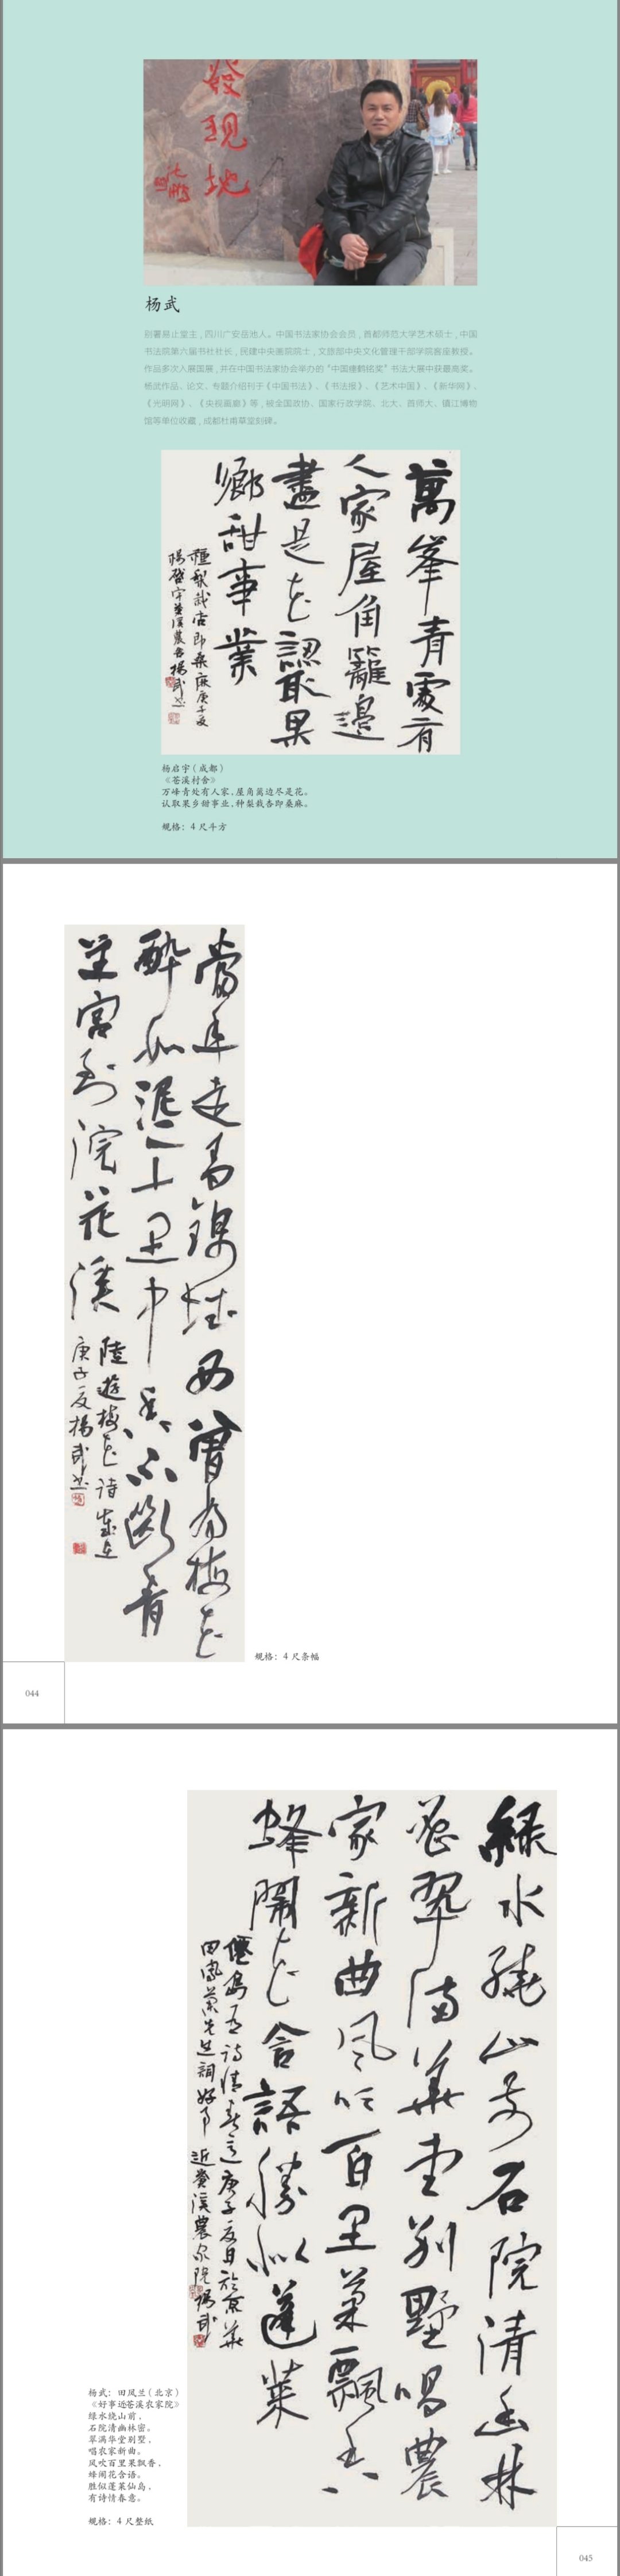 發現地
杨武
别署易止堂主，四川广安岳池人。中国书法家协会会员，首都师范大学艺术硕士，中国
书法院第六届书社社长，民建中央画院院士，文旅部中央文化管理干部学院客座教授。
作品多次入展国展，并在中国书法家协会举办的“中国瘗鹤铭奖”书法大展中获最高奖。
杨武作品、论文、专题介绍刊于《中国书法》、《书法报》、《艺术中国》、《新华网》、
《光明网》、《央视画廊》等，被全国政协、国家行政学院、北大、首师大、镇江博物
馆等单位收藏，成都杜甫草堂刻碑。
萬峯青處有
人家屋角籬邊
盡是花認取果
鄉甜事業
種梨栽杏即桑麻庚子夏
楊啟宇蒼溪農舍楊武书
杨启宇（成都）
《苍溪村舍》
万峰青处有人家，屋角篱边尽是花。
认取果乡甜事业，种梨栽杏即桑麻。
规格：4 尺斗方
當年走馬錦城西曾為梅花
醉如泥二十里中香不斷青
羊宮到浣花溪
陸游梅花诗
庚子夏楊武书
规格：4 尺条幅
044
綠水繞山前石院清幽林
密翠满華堂别墅唱農
家新曲风吹百里菓飄香
蜂鬧花含語勝似蓬莱
僊島有诗情春意庚子夏日於京華
田鳳蘭先生詞好事近蒼溪農家院楊武
杨武：田凤兰（北京）
《好事近苍溪农家院》
绿水绕山前，
石院清幽林密。
翠满华堂别墅，
唱农家新曲。
风吹百里果飘香，
蜂闹花含语。
胜似蓬莱仙岛，
有诗情春意。
规格：4 尺整纸
045